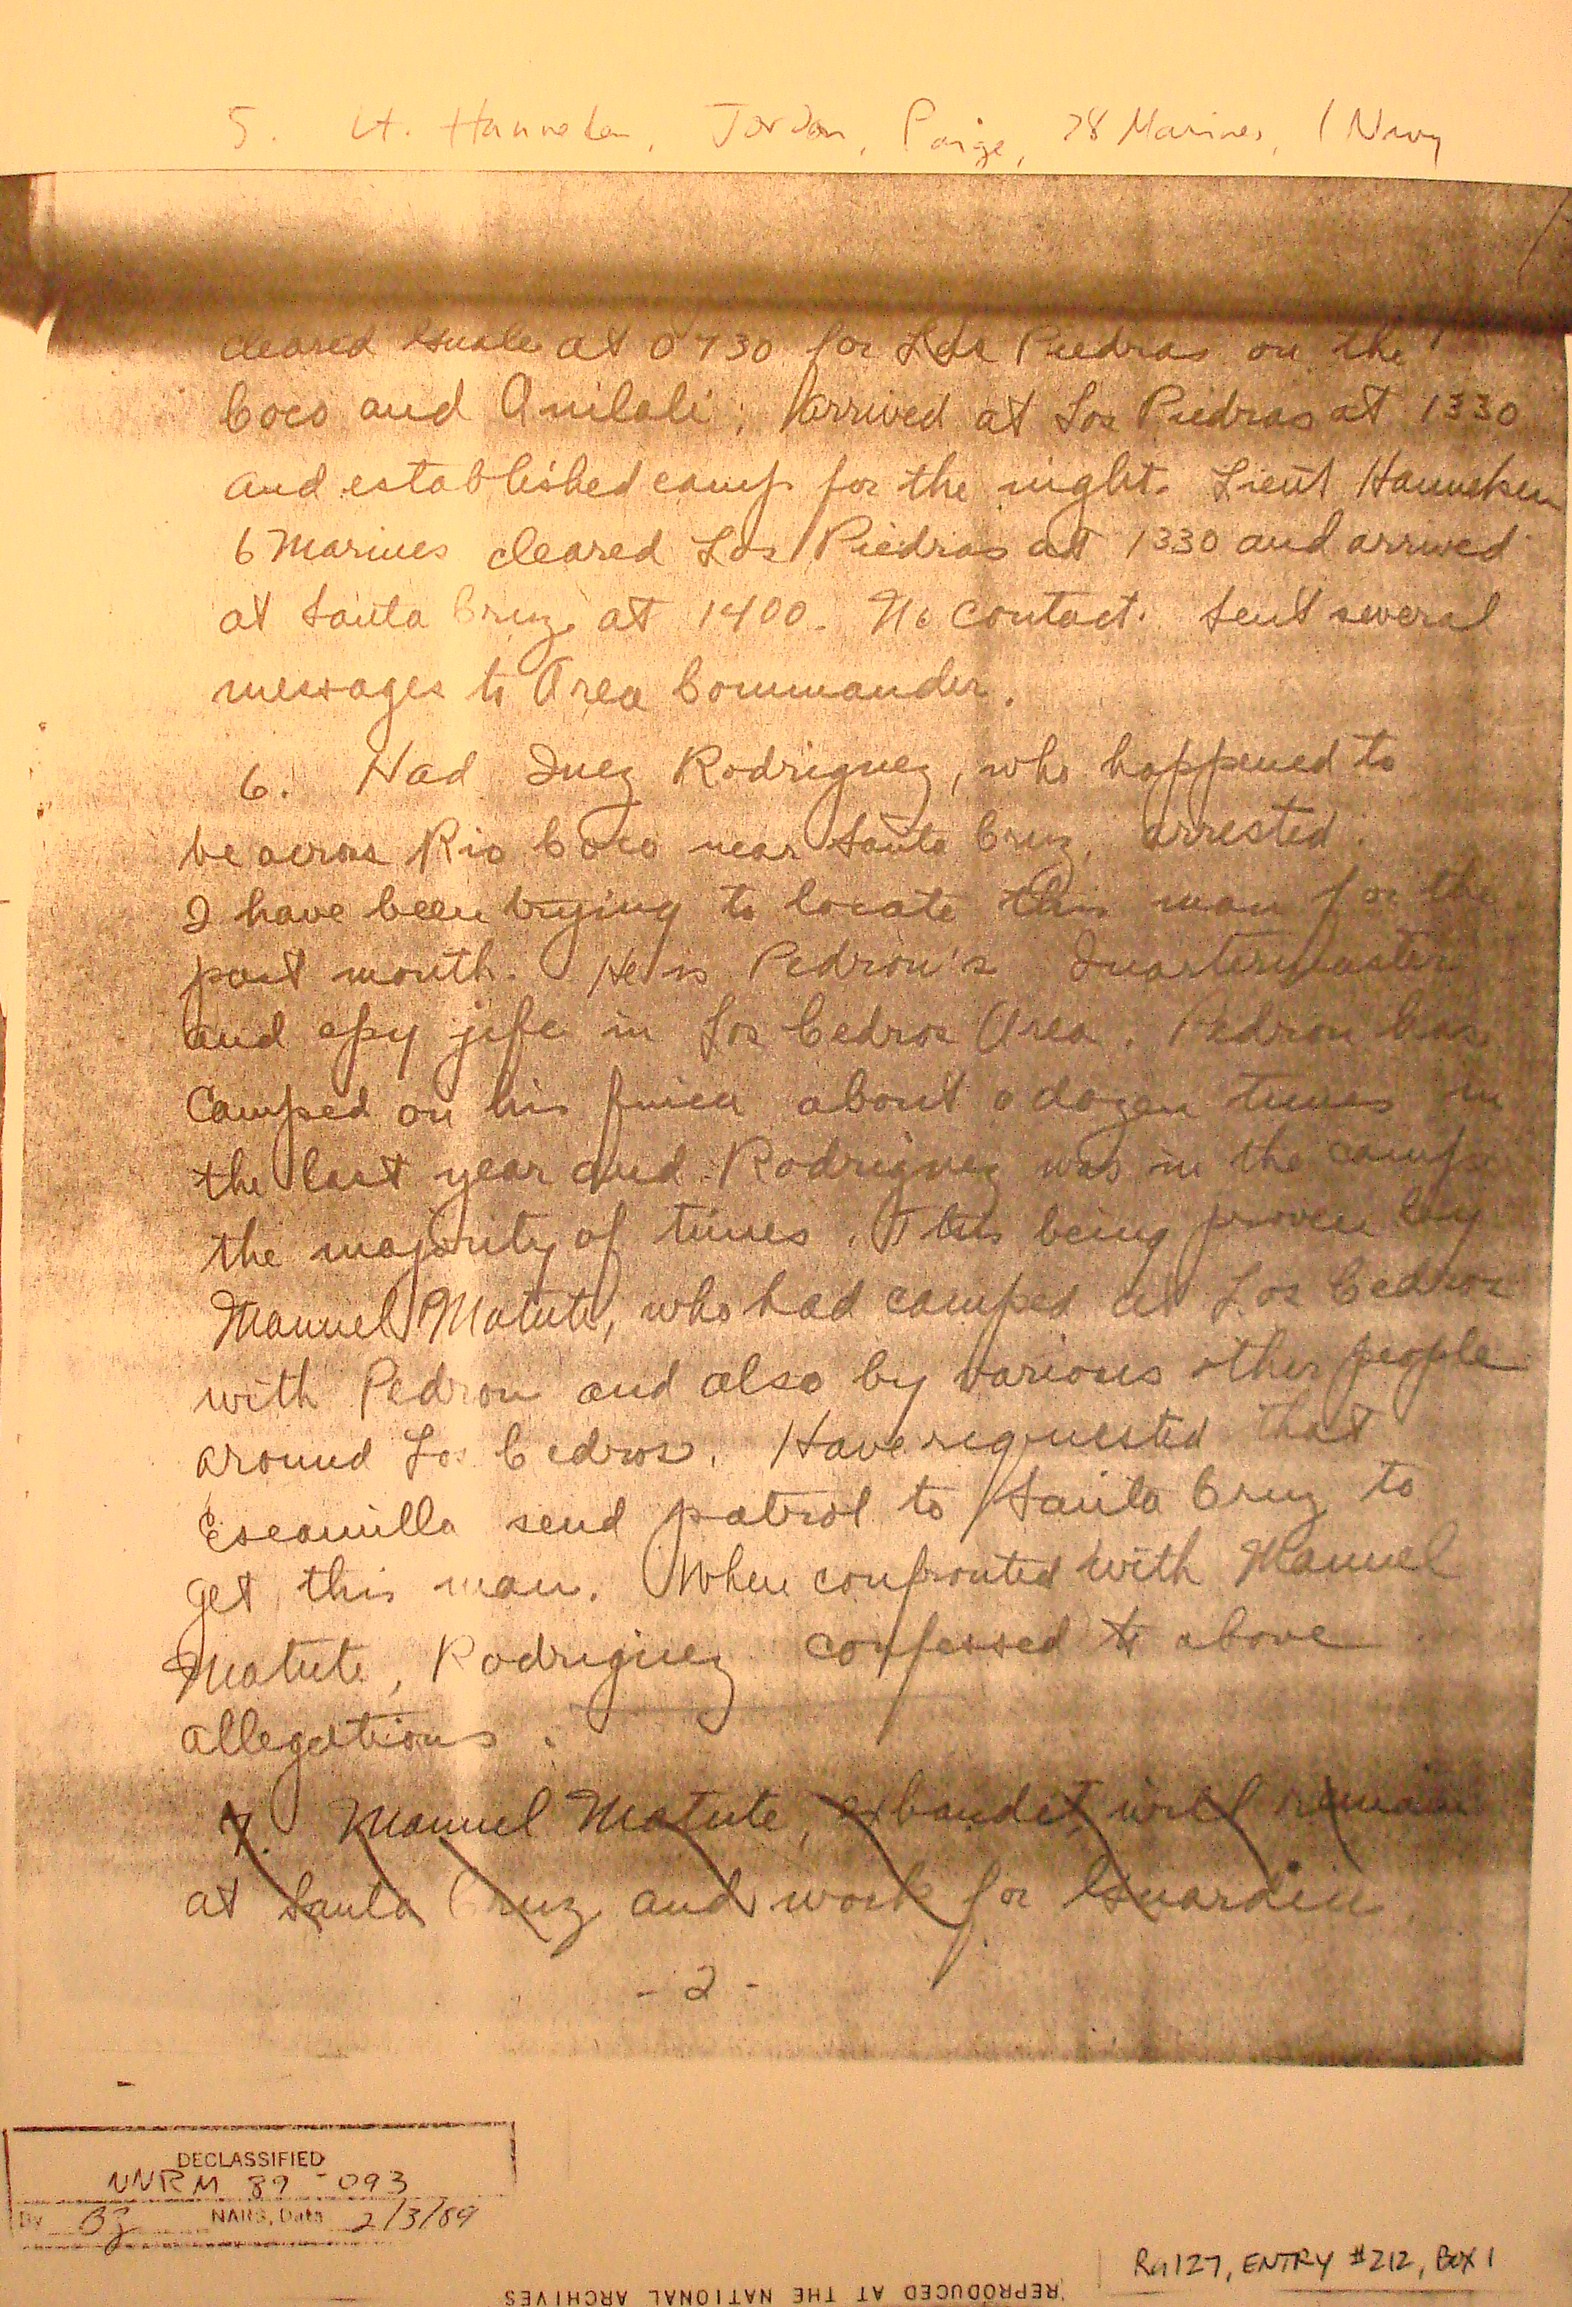 5. Lt. Hanneken, Jordan, Paige, 28 Marines, 1 Navy
cleared Guale at 0730 for Los Piedras on the
Coco and Quilali; Arrived at Los Piedras at 1330
and established camp for the night. Lieut Hanneken
6 Marines cleared Los Piedras at 1330 and arrived
at Santa Cruz at 1400. No contact. Sent several
messages to Area Commander.
6. Had Inez Rodriguez, who happened to
be across Rio Coco near Santa Cruz, arrested.
I have been trying to locate this man for the
past month. He is Pedron's Quartermaster
and spy jefe in Los Cedros Area. Pedron has
Camped on his finca about a dozen times in
the last year and Rodriguez was in the camp
the majority of times. This being proven by
Manuel Matute, who had camped at Los Cedros
with Pedron and also by various other people
around Los Cedros. Have requested that
Escamilla send patrol to Santa Cruz to
get this man. When confronted with Manuel
Matute, Rodriguez confessed to above
allegations.
7. Manuel Matute, exbandit, will remain
at Santa Cruz and work for Guardia.
- 2 -
DECLASSIFIED
NNRM 89-093
By BZ NARS, Date 2/3/89
RG127, ENTRY #212, BOX 1
REPRODUCED AT THE NATIONAL ARCHIVES